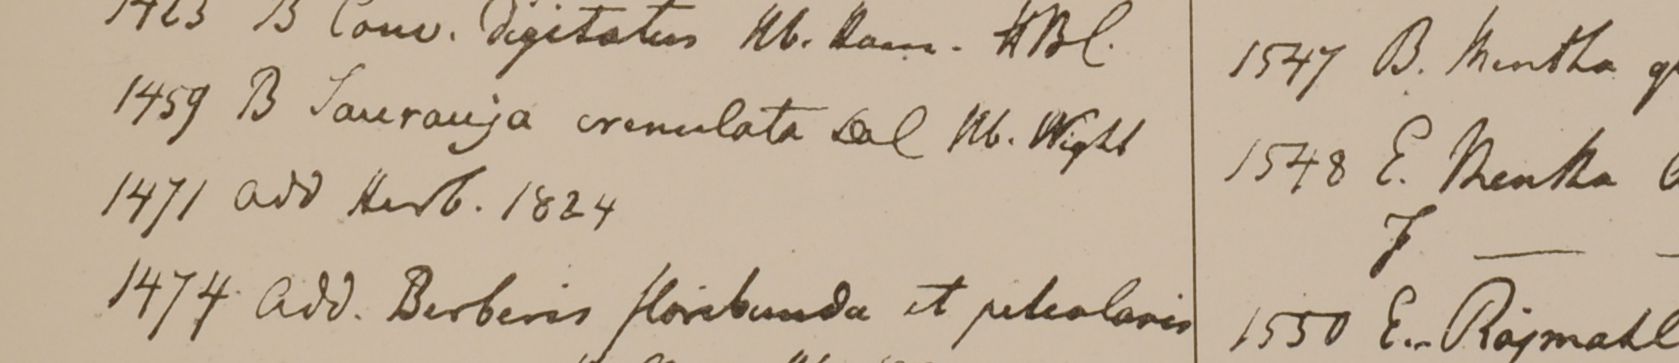 B Conv. digitatus Hb. Ham. HBC.
1459 B Saurauja crenulata Hb. Wight
1471 add Herb. 1824
1474 add. Berberis floribunda et petiolaris
1547 B. Mentha
1548 E. Mentha
F —
1550 E. Rajmahl